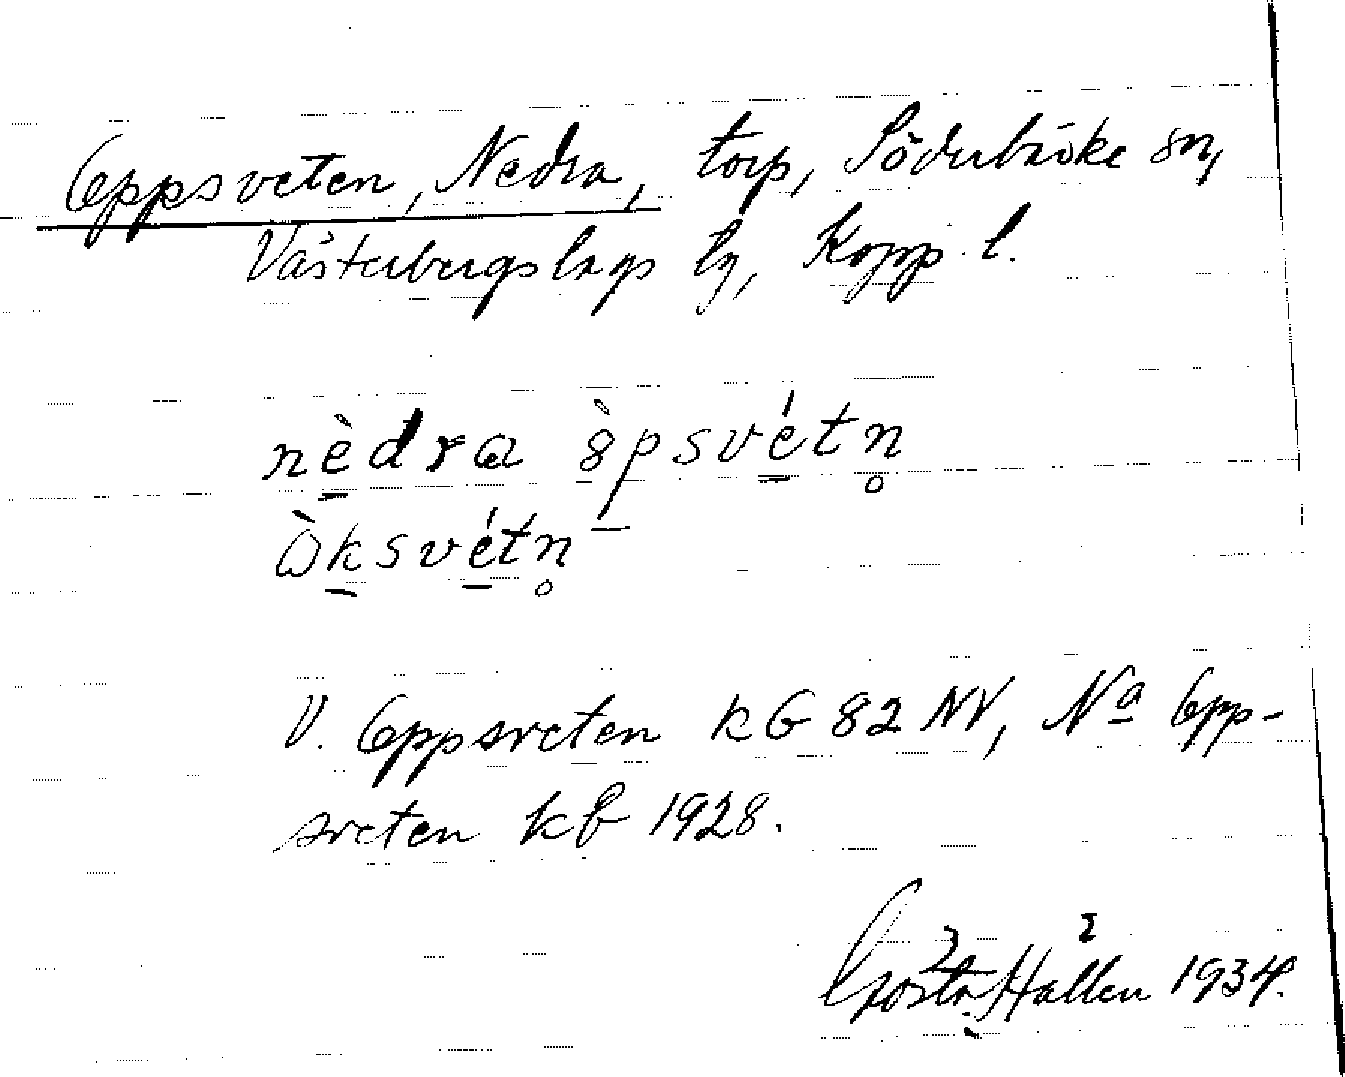 Oppsveten, Nedra, torp, Söderbärke sn,
Västerbergslags lg, Kopp. l.
nèdra òpsvétn̥
òksvétn̥
V. Oppsveten kG 82 NV, Nª Opp-
sveten kb 1928.
Gösta Hallen 1934.